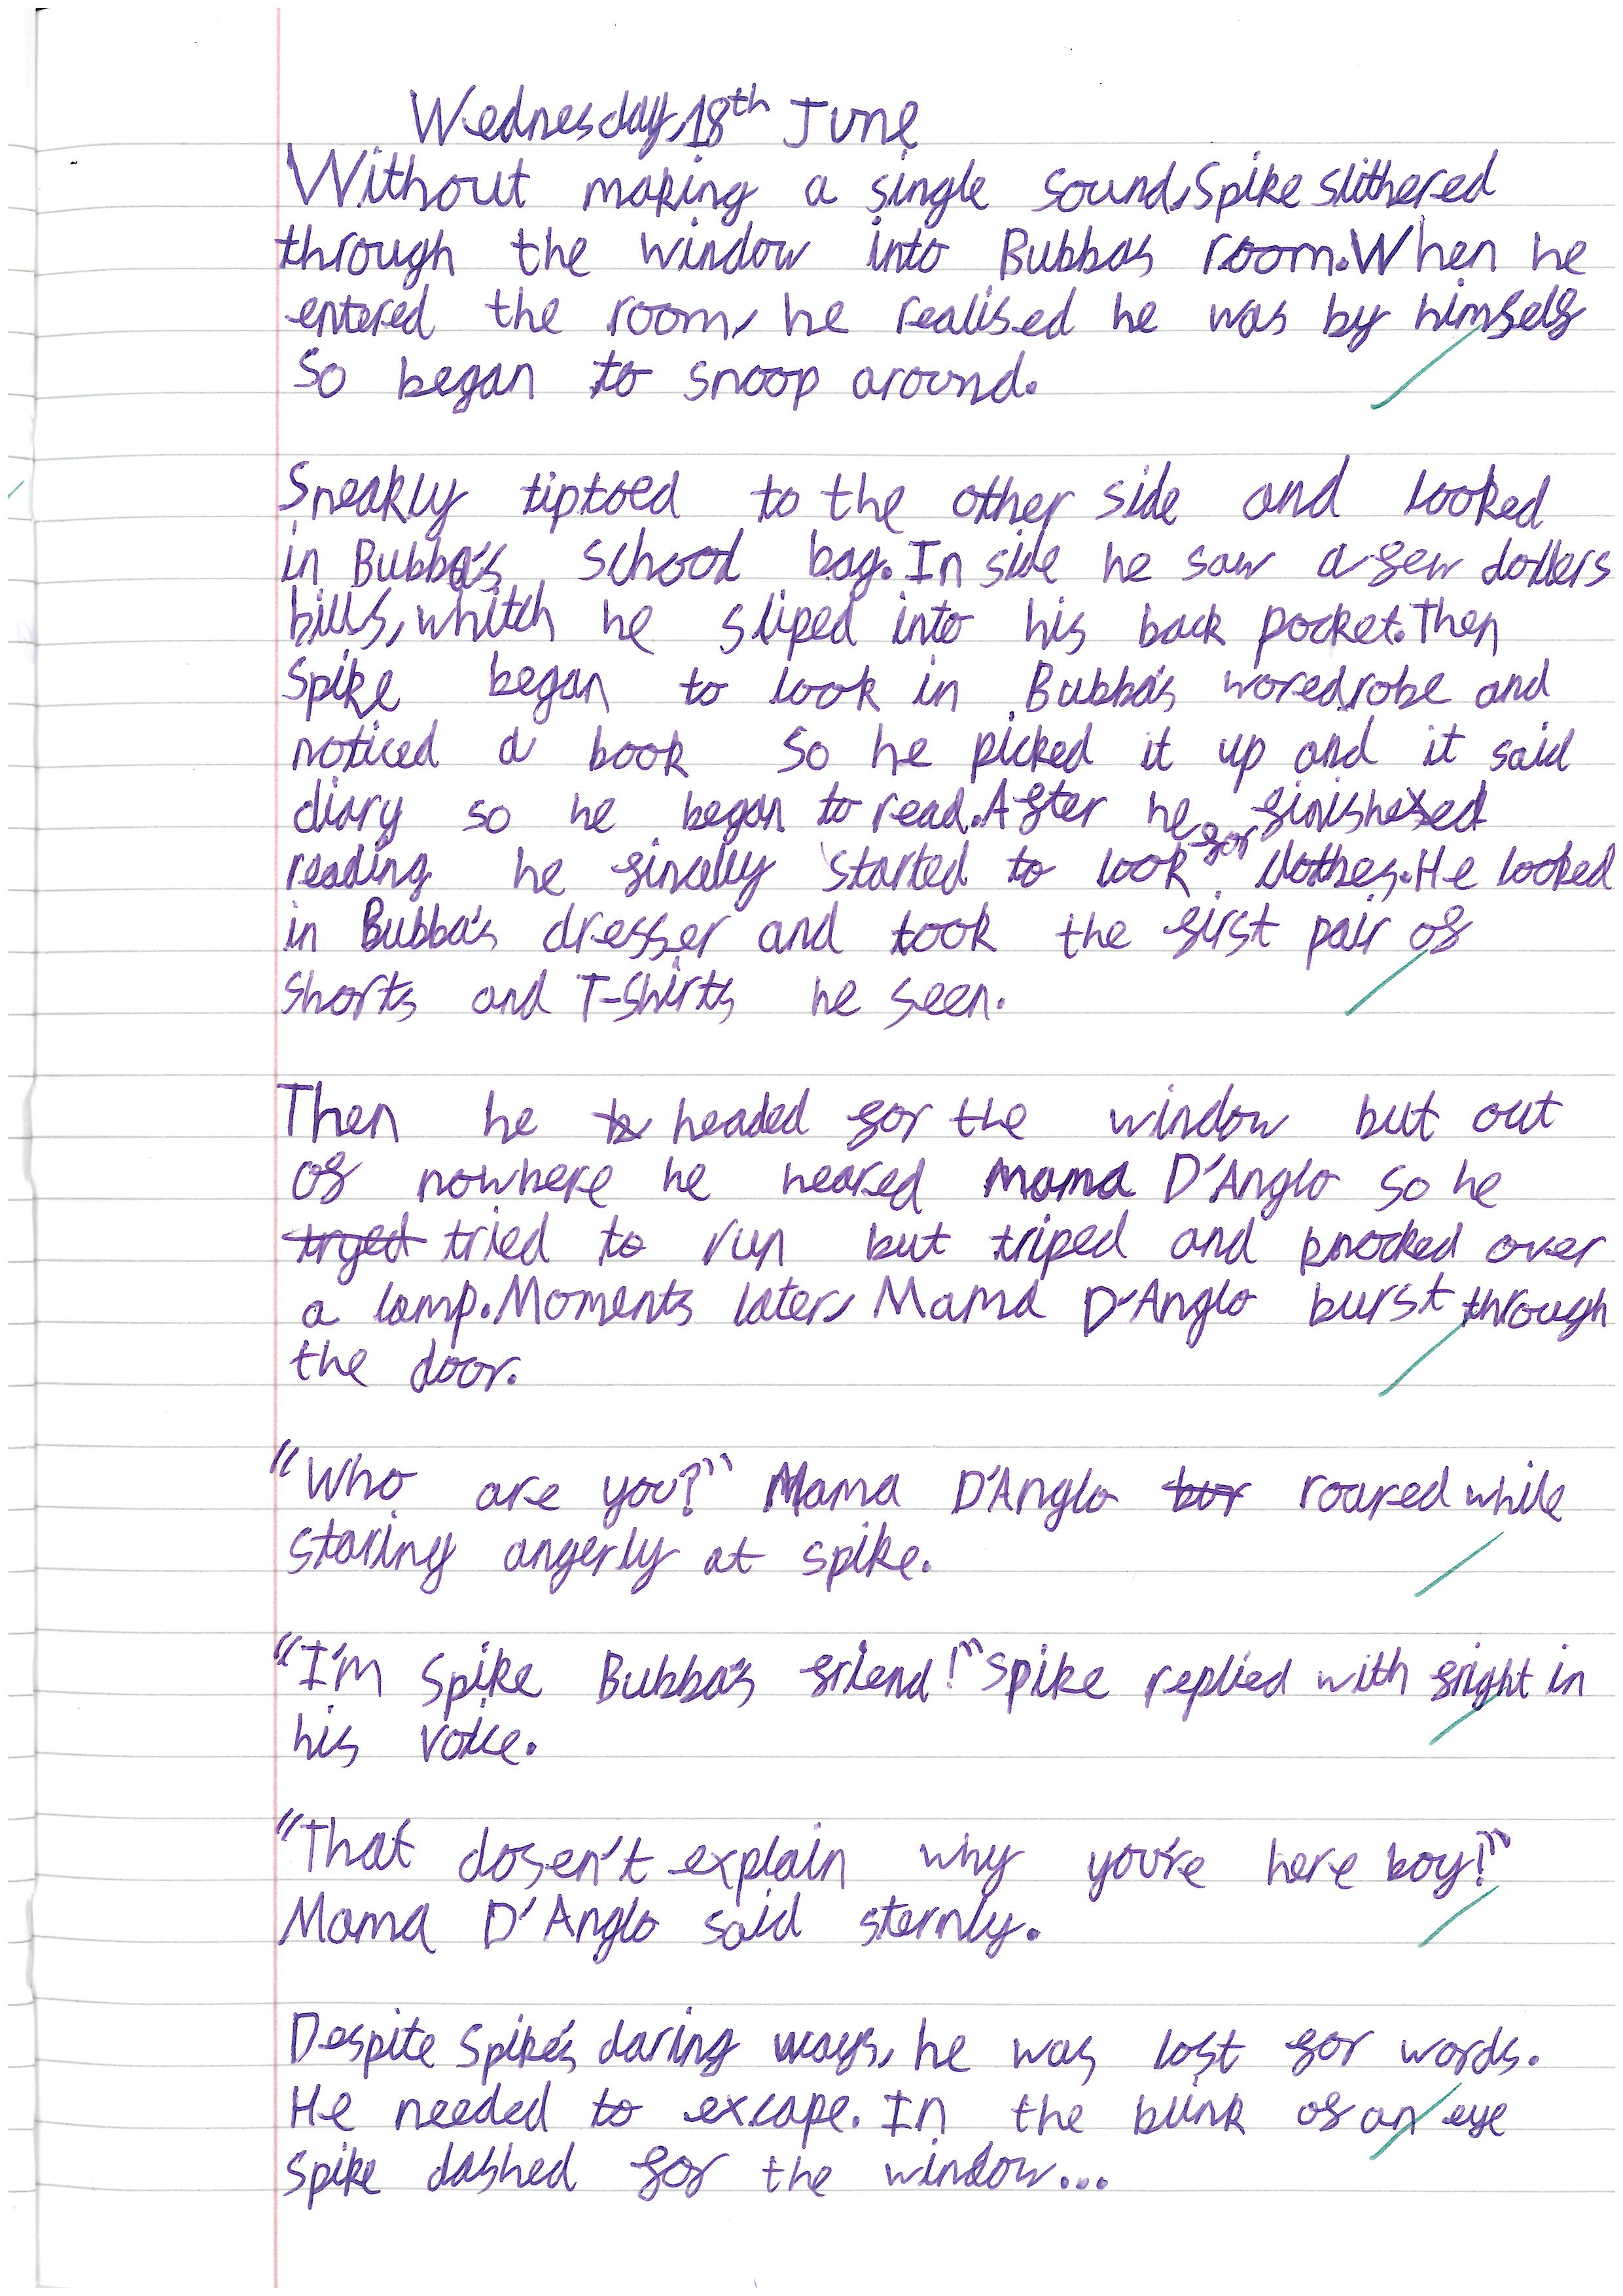 Wednesday, 18th June
Without making a single sound, Spike slithered
through the window into Bubbas room. When he
entered the room, he realised he was by himself
so began to snoop around.
Sneakly tiptoed to the other side and looked
in Bubba's school bag. In side he saw a few dollers
bills, whitch he sliped into his back pocket. Then
Spike began to look in Bubba's woredrobe and
noticed a book so he picked it up and it said
diary so he began to read. After he finished
reading he finally started to look for clothes. He looked
in Bubba's dresser and took the first pair of
shorts and T-shirts he seen.
Then he headed for the window but out
of nowhere he heared Mama D'Anglo so he
tryed tried to run but triped and knocked over
a lamp. Moments later, Mama D'Anglo burst through
the door.
"Who are you?" Mama D'Anglo roared while
staring angerly at spike.
"I'm Spike Bubba's friend!" Spike replied with fright in
his voice.
"That dosen't explain why you're here boy!"
Mama D'Anglo said sternly.
Despite Spike's daring ways, he was lost for words.
He needed to excape. In the blink of an eye
spike dashed for the window...